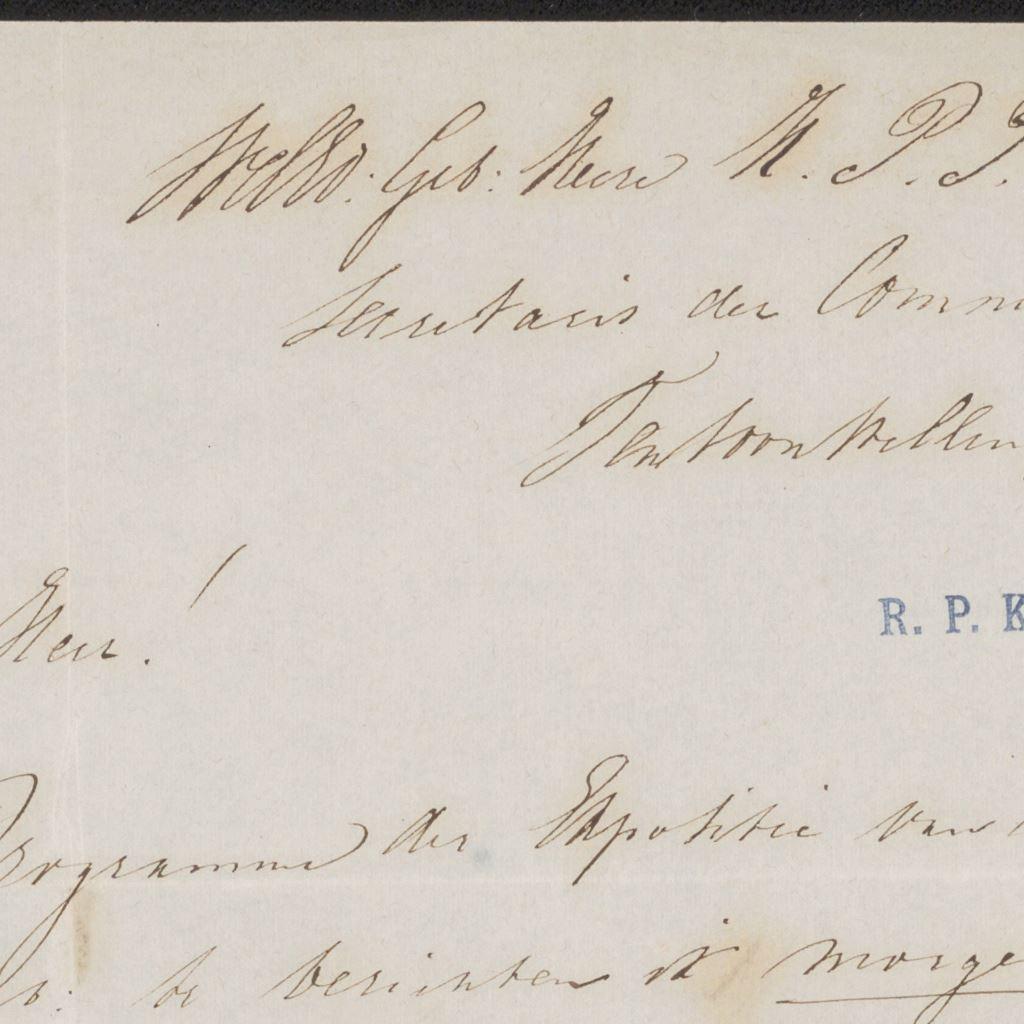 WelEd: Geb: Heere H. P. J.
Secretaris der Comm
Tentoonstellin
Heer!
R. P. K
Programme der Expositie van
te berichten ik morge